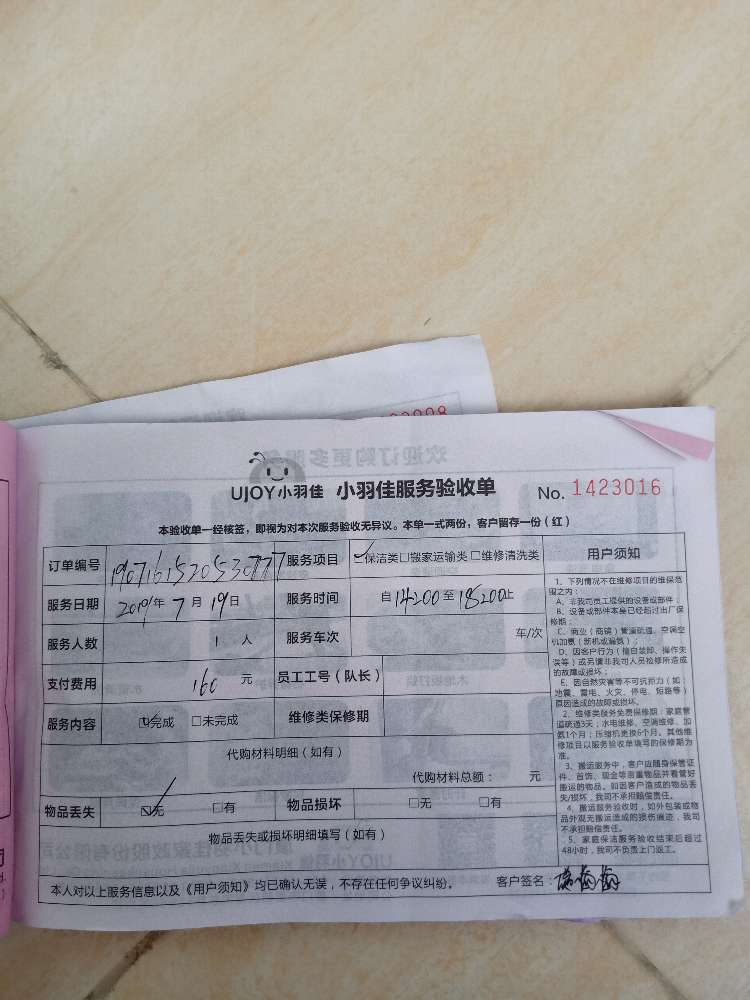 UJOY小羽佳 小羽佳服务验收单 No. 1423016
本验收单一经核签，即视为对本次服务验收无异议。本单一式两份，客户留存一份（红）
订单编号 190716152053077 服务项目 ☑保洁类□搬家运输类□维修清洗类
服务日期 2019年7月19日 服务时间 自14:00至18:00止
服务人数 1人 服务车次 车/次
支付费用 160元 员工工号（队长）
服务内容 ☑完成 □未完成 维修类保修期
代购材料明细（如有）
代购材料总额： 元
物品丢失 ☑无 □有 物品损坏 □无 □有
物品丢失或损坏明细填写（如有）
本人对以上服务信息以及《用户须知》均已确认无误，不存在任何争议纠纷。 客户签名：
用户须知
1、下列情况不在维修项目的维保范
围之内：
A、非我司员工提供的设备或部件；
B、设备或部件本身已经超过出厂保
修期；
C、商业（商铺）管道疏通、空调空
机加氨（新机或漏氨）；
D、因客户行为（擅自装卸、操作失
误等）或另请非我司人员检修所造成
的故障或损坏；
E、因自然灾害等不可抗拒力（如：
地震、雷电、火灾、停电、短路等）
原因造成的故障或损坏。
2、维修类服务免费保修期：家庭管
道疏通3天；水电维修、空调维修、加
氨1个月；压缩机更换6个月。其他维
修项目以服务验收单填写的保修期为
准。
3、搬运服务中，客户应随身保管证
件、首饰、现金等贵重物品并看管好
搬运的物品。如因客户造成的物品丢
失/损坏，我司不承担赔偿责任。
4、搬运服务验收时，如外包装或物
品外观无搬运造成的损伤痕迹，我司
不承担赔偿责任。
5、家庭保洁服务验收结束后超过
48小时，我司不负责上门返工。